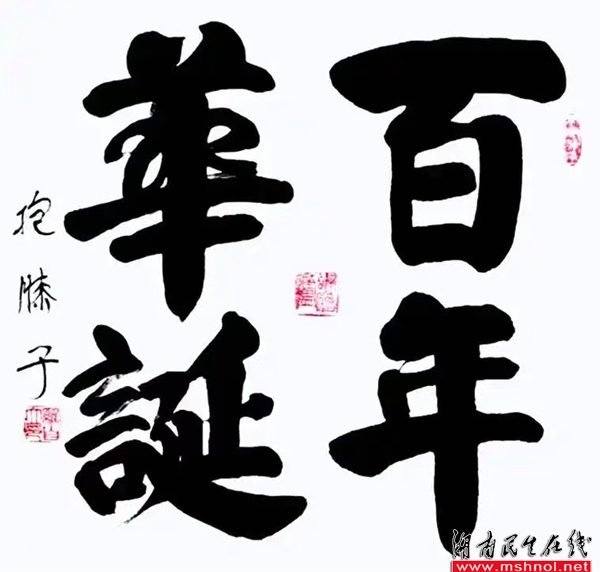 百年
華誕
抱膝子
湖南民生在线
www.mshnol.net